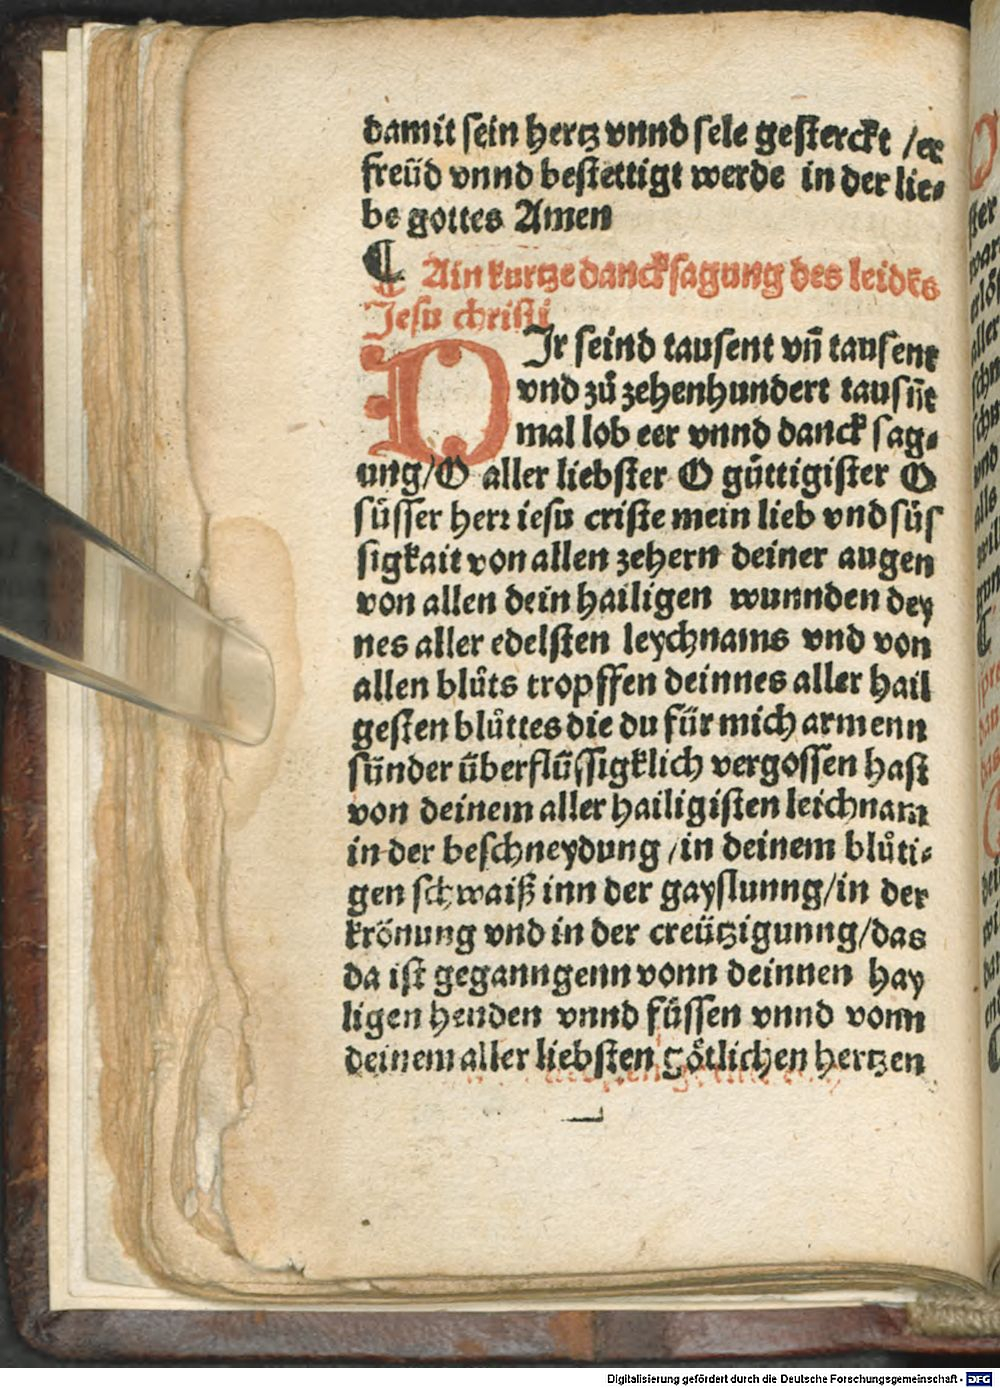 damit sein hertz vnnd sele gesterckt /er
freüd vnnd bestettigt werde in der lie⸗
be gottes Amen
¶ Ain kurtze dancksagung des leidēs
Jesu christi
DIr seind tausent vn̄ tausent
vnd zů zehenhundert tausn̄t
mal lob eer vnnd danck sag⸗
ung/O aller liebster O gůttigister O
süsser herr iesu criste mein lieb vnd süs
sigkait von allen zehern deiner augen
von allen dein hailigen wunnden dey
nes aller edelsten leychnams vnd von
allen blůts tropffen deinnes aller hail
gesten blůttes die du für mich armenn
sünder überflüssigklich vergossen hast
von deinem aller hailigisten leichnam
in der beschneydung /in deinem blůti⸗
gen schwaiß inn der gayslunng/in der
krönung vnd in der creützigunng/das
da ist geganngenn vonn deinnen hay
ligen henden vnnd füssen vnnd vonn
deinem aller liebsten götlichen hertzen
Digitalisierung gefördert durch die Deutsche Forschungsgemeinschaft - DFG